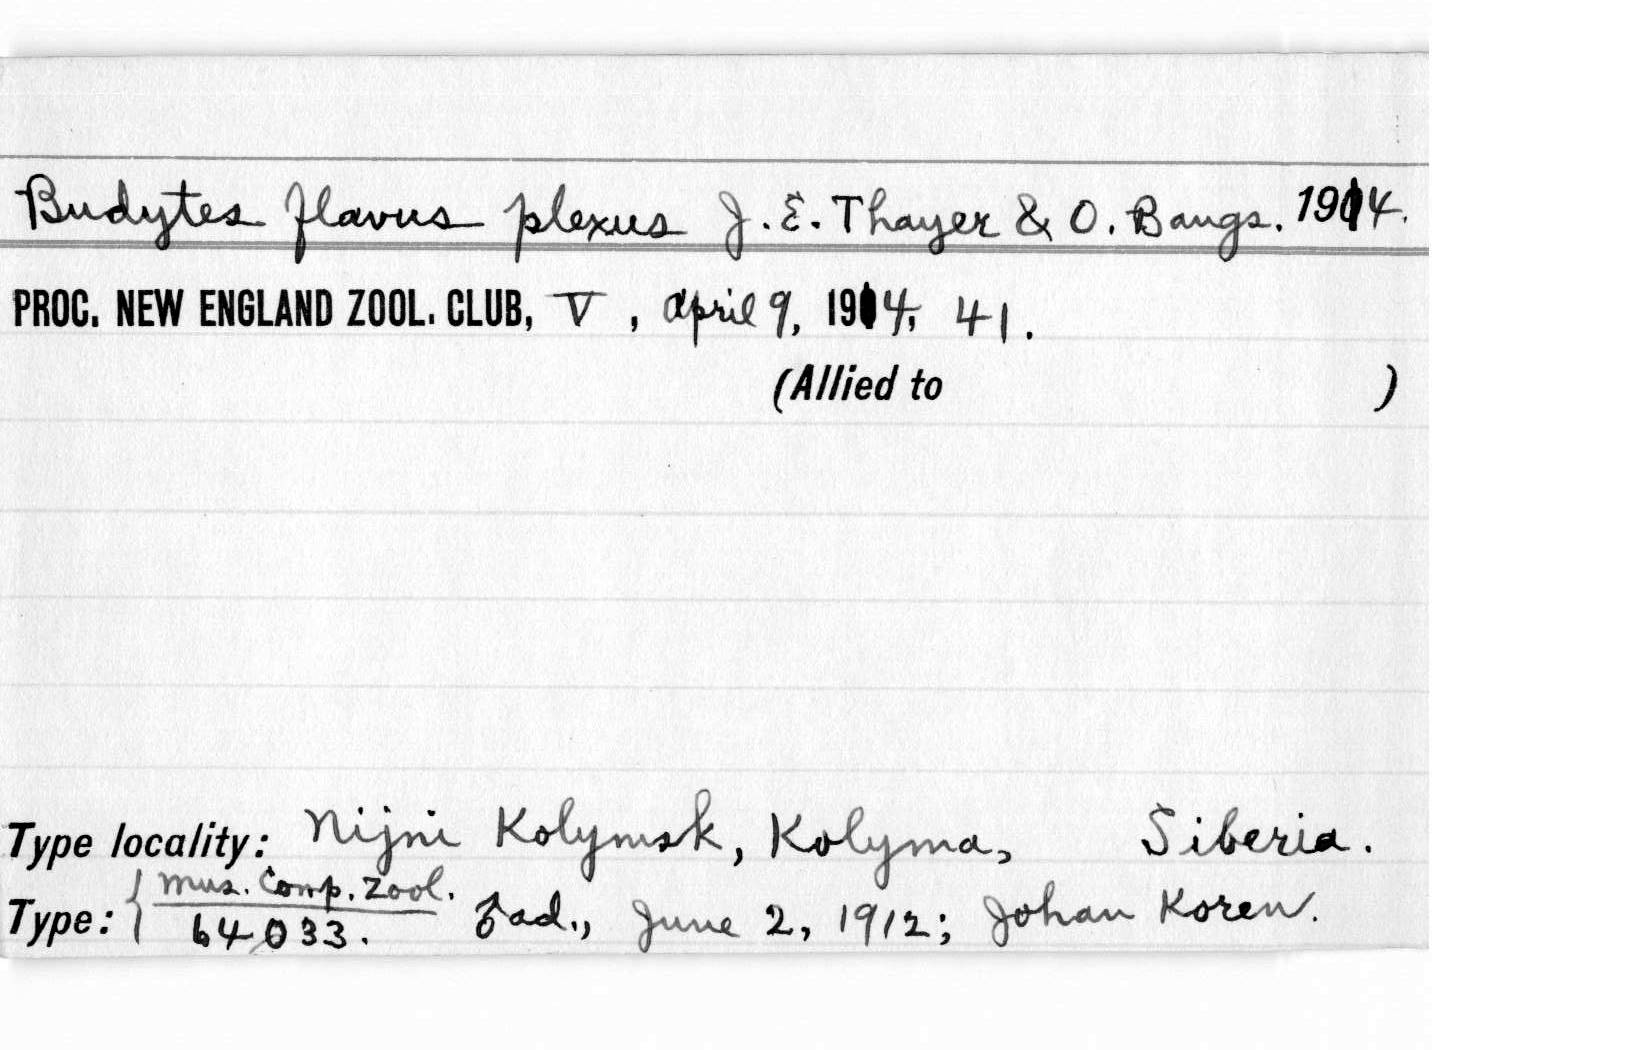 Budytes flavus plexus J. E. Thayer & O. Bangs. 1914.
PROC. NEW ENGLAND ZOOL. CLUB, V, April 9, 1914, 41.
(Allied to )
Type locality: Nijni Kolymsk, Kolyma, Siberia.
Mus. Comp. Zool.
Type: { 64033. ♂ ad., June 2, 1912; Johan Koren.